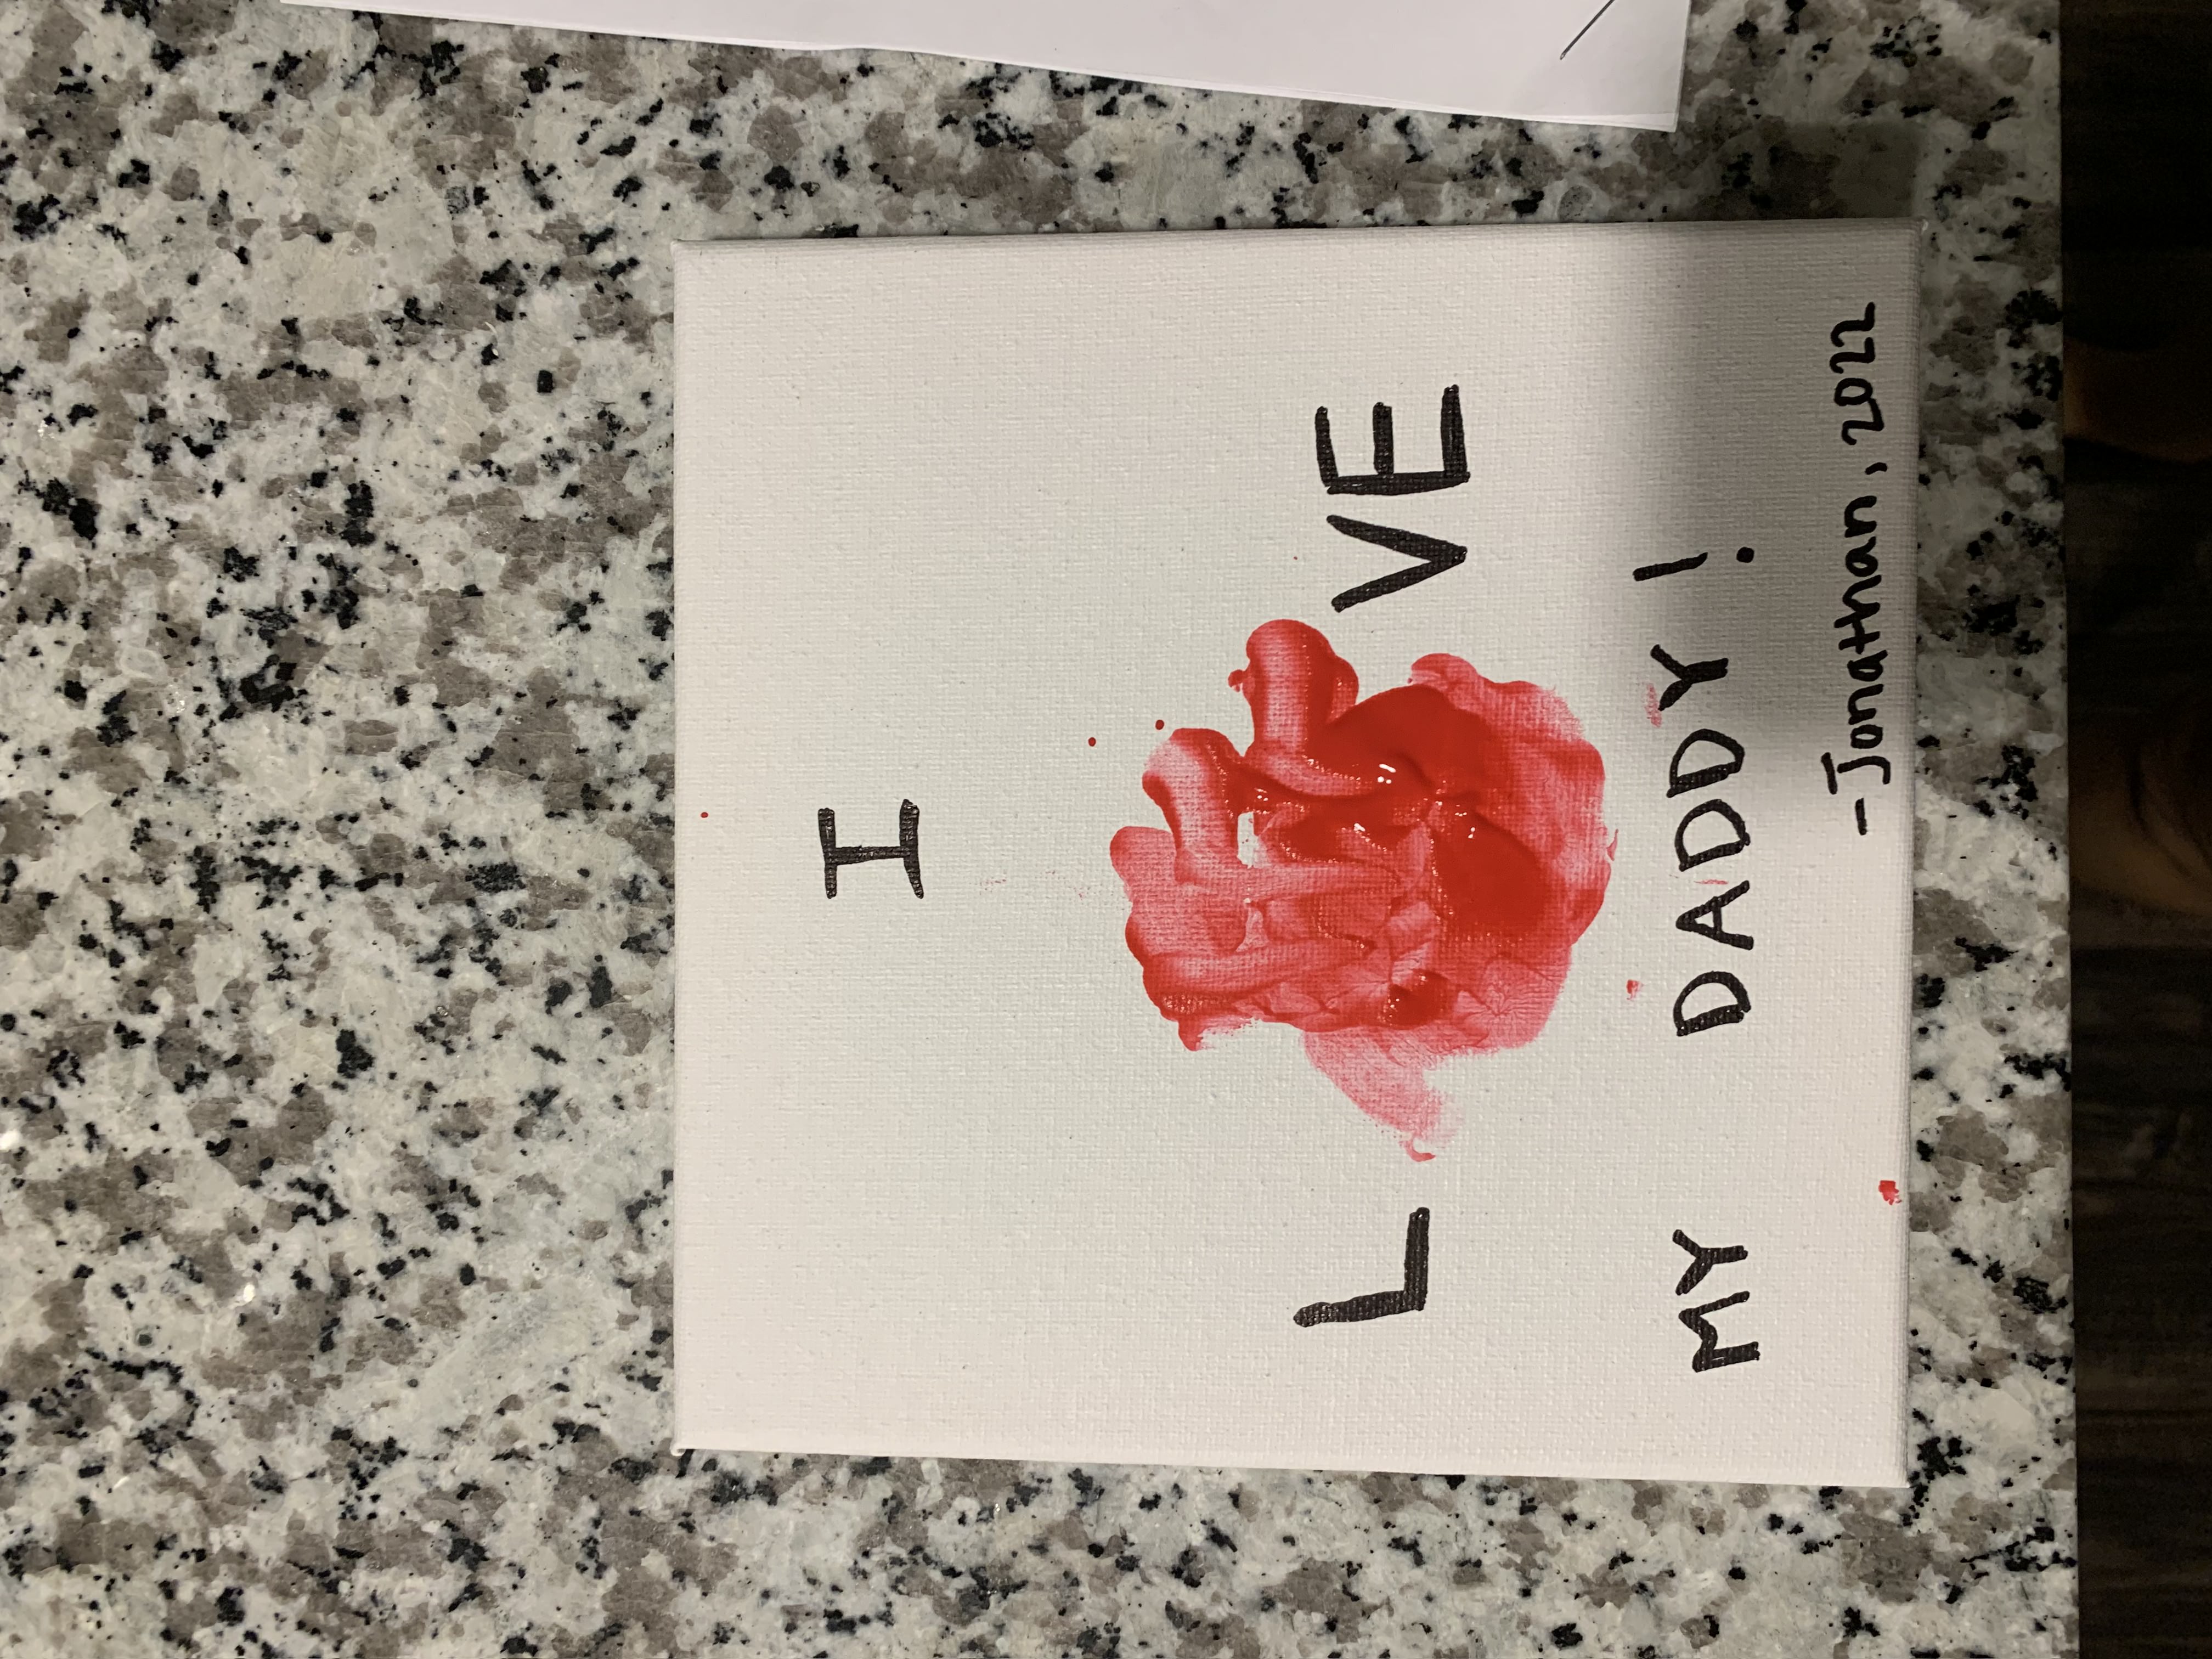 I
L VE
MY DADDY!
-Jonathan, 2022